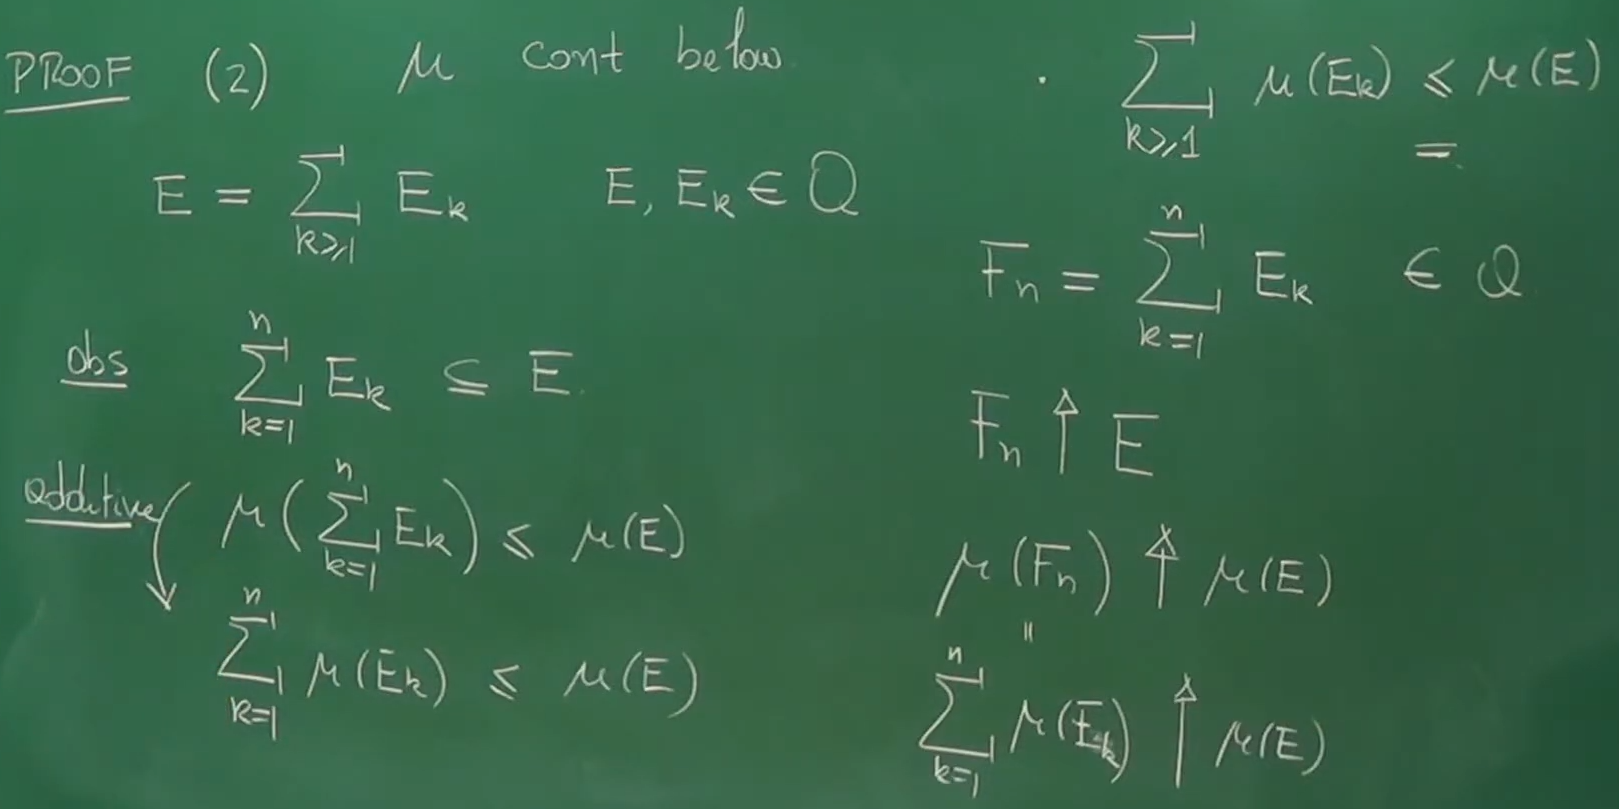 PROOF (2) μ cont below
E = ∑_{k≥1} E_k    E, E_k ∈ Q
obs ∑_{k=1}^{n} E_k ⊆ E.
additive μ(∑_{k=1}^{n} E_k) ≤ μ(E)
∑_{k=1}^{n} μ(E_k) ≤ μ(E)
· ∑_{k≥1} μ(E_k) ≤ μ(E)
=
F_n = ∑_{k=1}^{n} E_k ∈ Q
F_n ↑ E
μ(F_n) ↑ μ(E)
=
∑_{k=1}^{n} μ(E_k) ↑ μ(E)